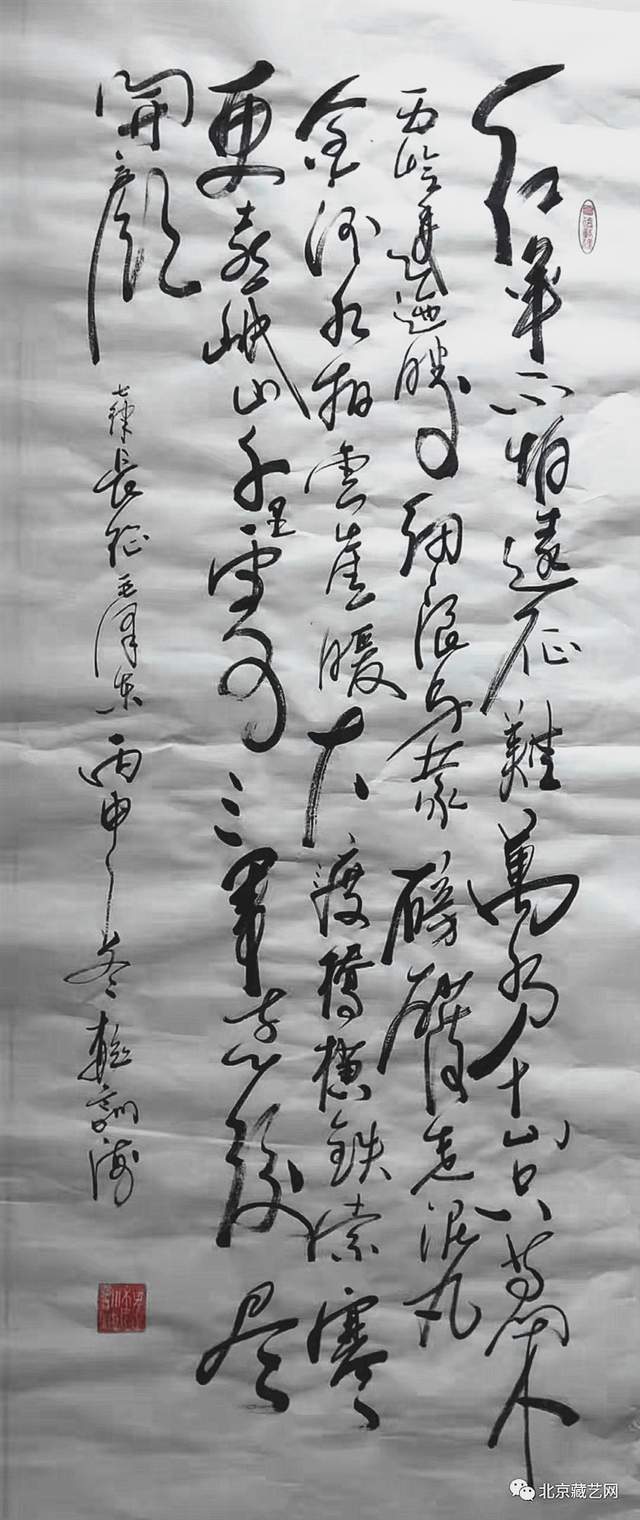 红军不怕遠征難萬水千山只等閑
五岭逶迤腾细浪乌蒙磅礴走泥丸
金沙水拍雲崖暖大渡橋横鉄索寒
更喜岷山千里雪三軍过後尽
開颜
七律長征毛泽东丙申之冬
北京藏艺网